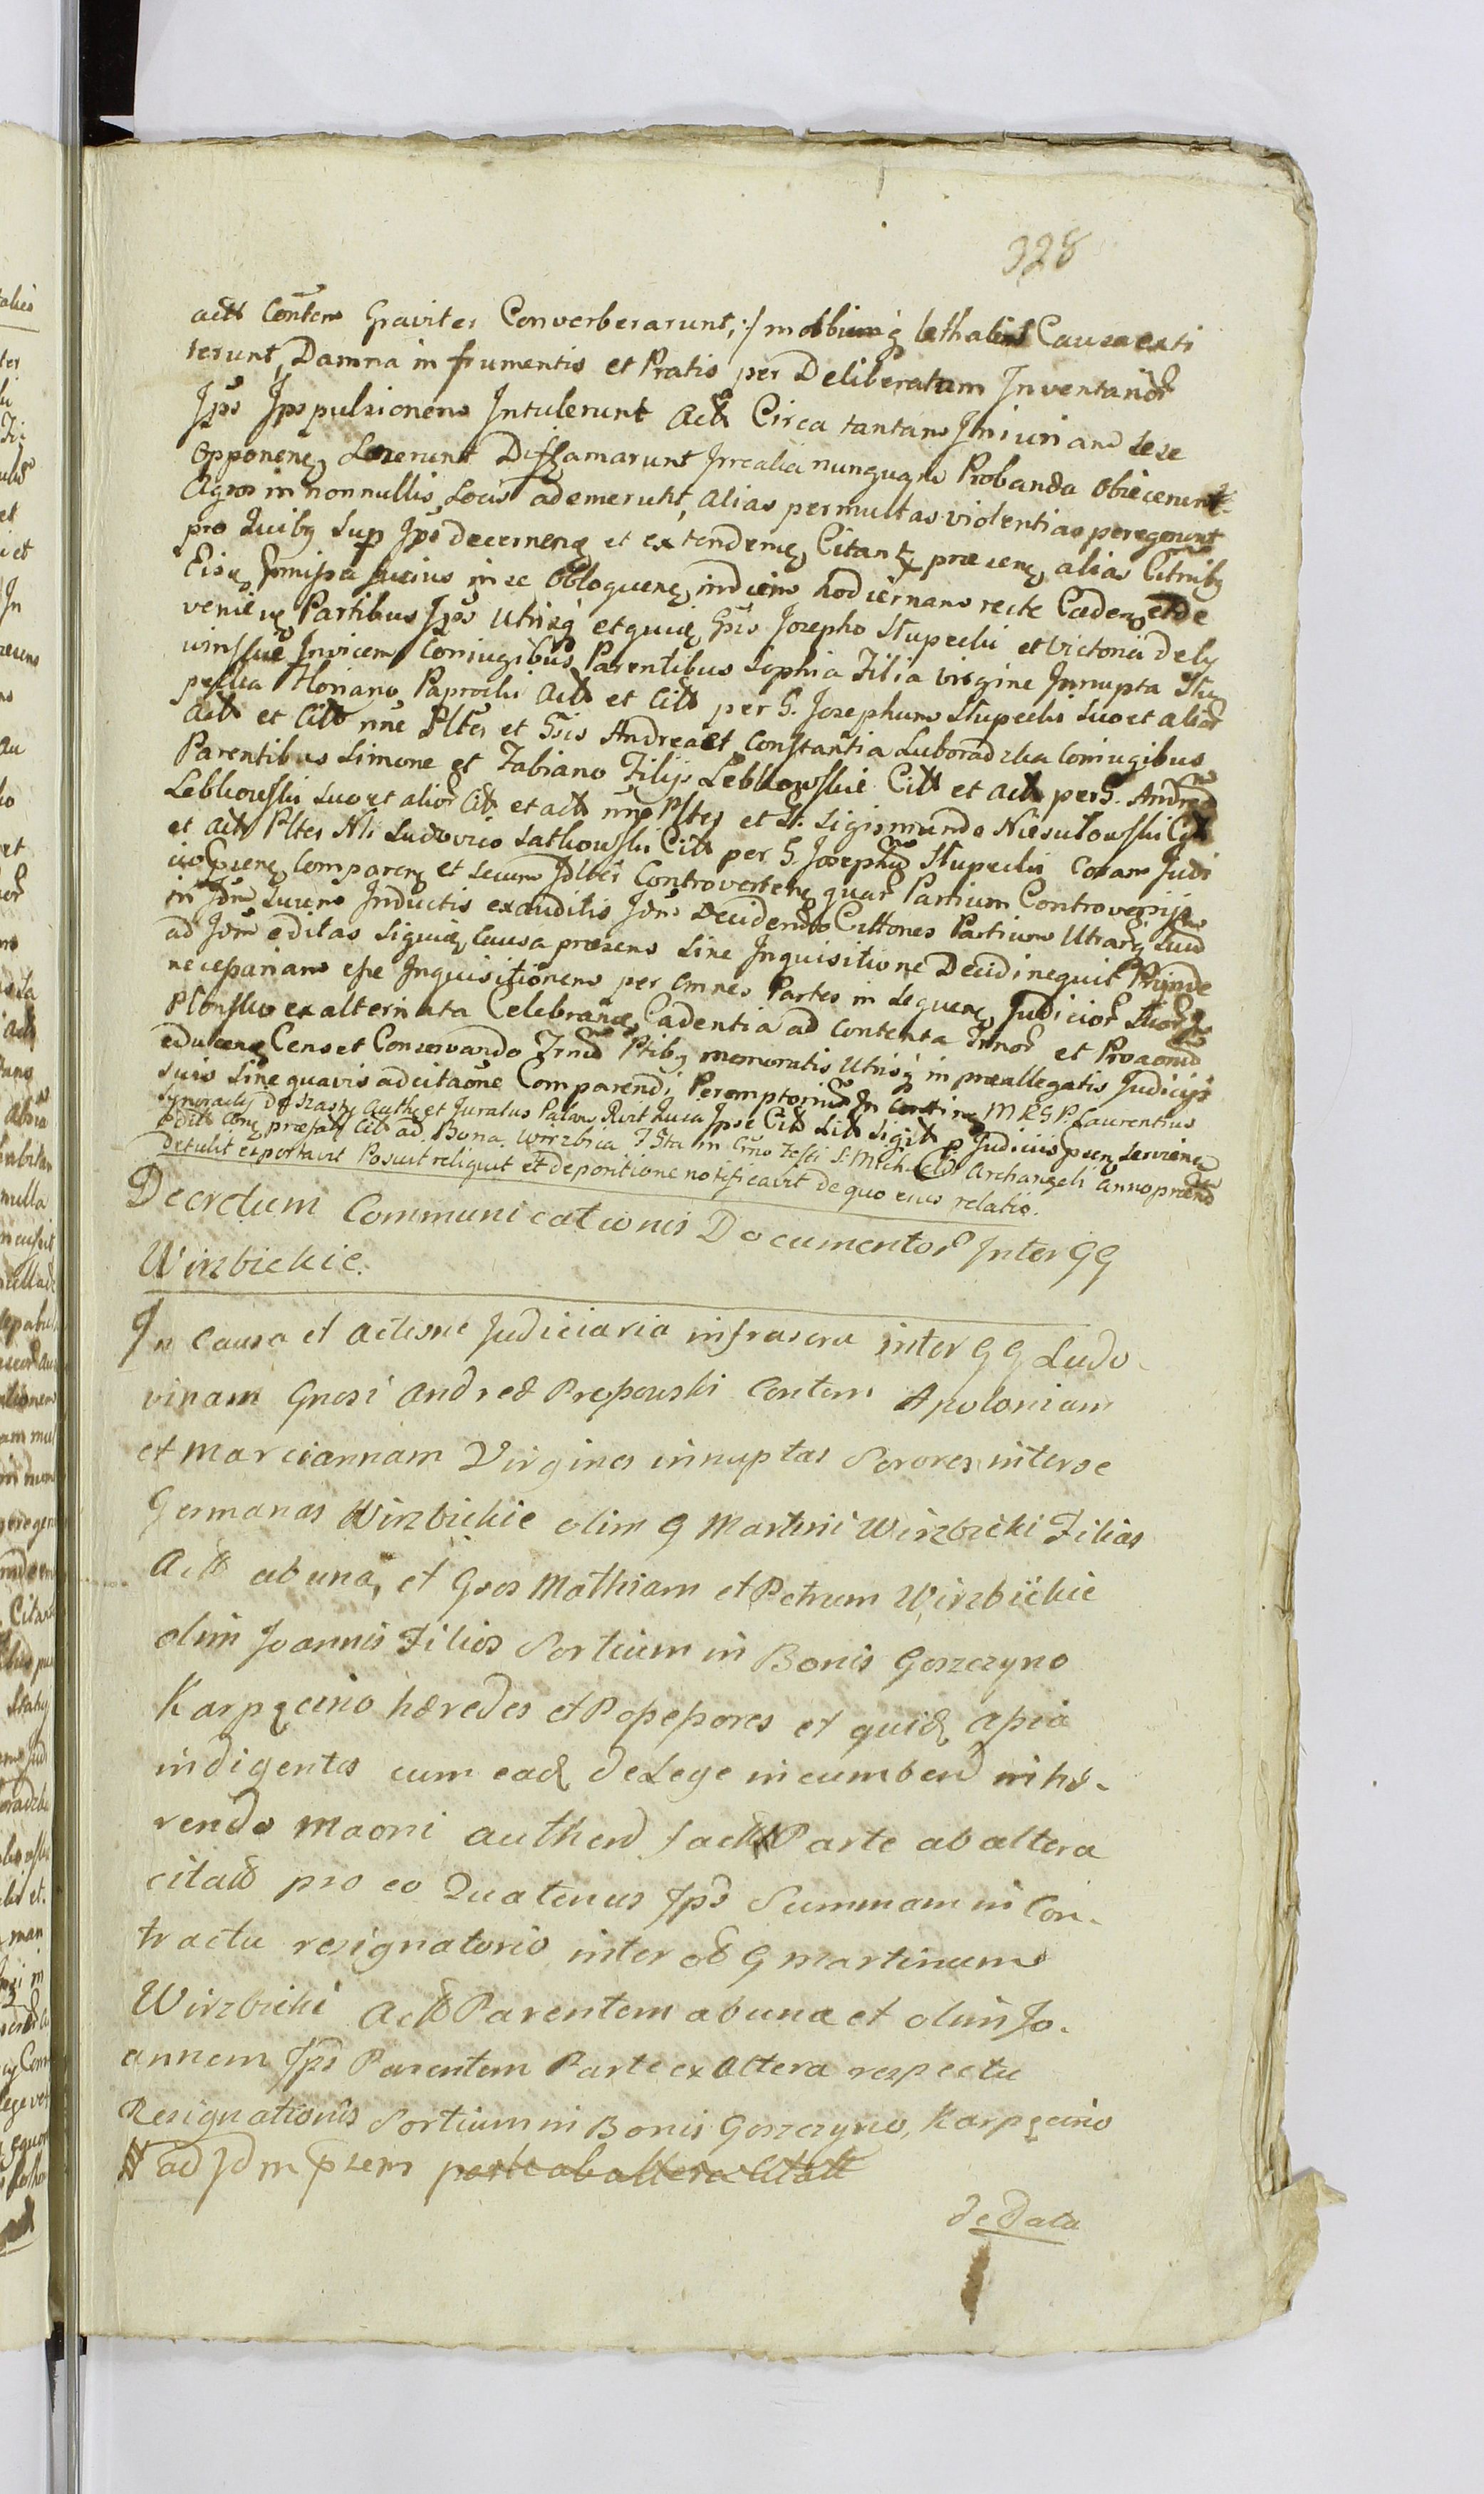 328
actt Conten Graviter Converberarunt, :/ morbiumq lethalium Causa exti
terunt, Damna in frumentis et Pratis per Deliberatam Inventarior
Ips Ipspulsionem Intulerunt Actt Circa tantam Iniuriam sese
Opponen Leserunt Diffamarunt Irrealia nunquam Probanda Obiecerunt
Agros in nonnullis Locis ademerunt, alias permultas violentias peregerunt
pro Quibq Sup Ips decernen et extenden Citant præsen alias Citnibq
Eisq Inmissa fusius in se Obloquen indiem hodiernam recte Caden et de
venien Partibus Ips Utrisq et quid Gsis Josepho Slupecki et Victoria de Ly
winskie Invicem Coniugibus Parentibus Sophia Filia Virgine Innupta Slu
pecka Floriano Paprocki Actt et Citt per G. Josephum Slupecki suo et alior
Actt et Citt nne Pltes et Gsis Andrea et Constantia Luboradzka Coniugibus
Parentibus Simone et Fabiano Filijs Lebkowskie Citt et Actt per G. Andream
Lebkowski suo et alior Citt et actt nne Pltes et G. Sigismundo Niesulowski Citt
et Actt Pltes Nli Ludovico Satkowski Citt per G. Josephum Slupecki Coram Judi
cio pnen Comparen et secum Idltes Controverten quar Partium Controversijs
in Idm Surens Inductis exauditis Idm Decidendo Cittones Partium Utrarq Suas
ad Idm editas Siquid Causa præsens sine Inquisitione Decidi nequit Proinde
necessariam esse Inquisitionem per Omnes Partes in sequen Judicior
Plonsko ex alternata Celebran Cadentia ad Contenta Innor et Proaonum
educen Censet Conservando Trnum Ptibq memoratis Utrisq in præallegatis Judicijs
suis sine quavis adcitaone Comparendi Peremptorium In Contin M R G P. Laurentius
Auth et Juratus Palam Rcit Quia Ipse Citt Litt Sigitt p Judiciis pnen Servien
editt Conq præfatt Citt ad Bona Wirzbica F Sta in Crno Festi S. Michaelis Archangeli anno præsend
Detulit exportavit Posuit reliquit et de positione notificavit de quo eius relatio.
Decretum Communicationis Documentor Inter GG
Wirzbickie.
In Causa et Actione Judiciaria infrascra inter GG Ludo-
vinam Gnosi Andreæ Propowski Contem Apoloniam
et Marciannam Virgines innuptas Sorores interse
Germanas Wirzbickie olim G Martini Wirzbicki Filias
Actt ab una, et Gsos Mathiam et Petrum Wirzbickie
olim Joannis Filios Sortium in Bonis Goszczyno
Karpęcino hæredes et Possessores et quid apia
indigentes cum ead de Lege incumben inhæ-
rendo Maoni authen / actt Parte ab altera
citatt pro eo Quatenus Ips Summam in Con-
tractu resignatorio inter ol G Martinum
Wirzbicki Actt Parentem ab una et olim Jo-
annem Ips Parentem Parte ex altera respectu
Resignationis Sortium in Bonis Goszczyno, Karpęcino
# ad Idm psens parte ab altera Citatt
de Data